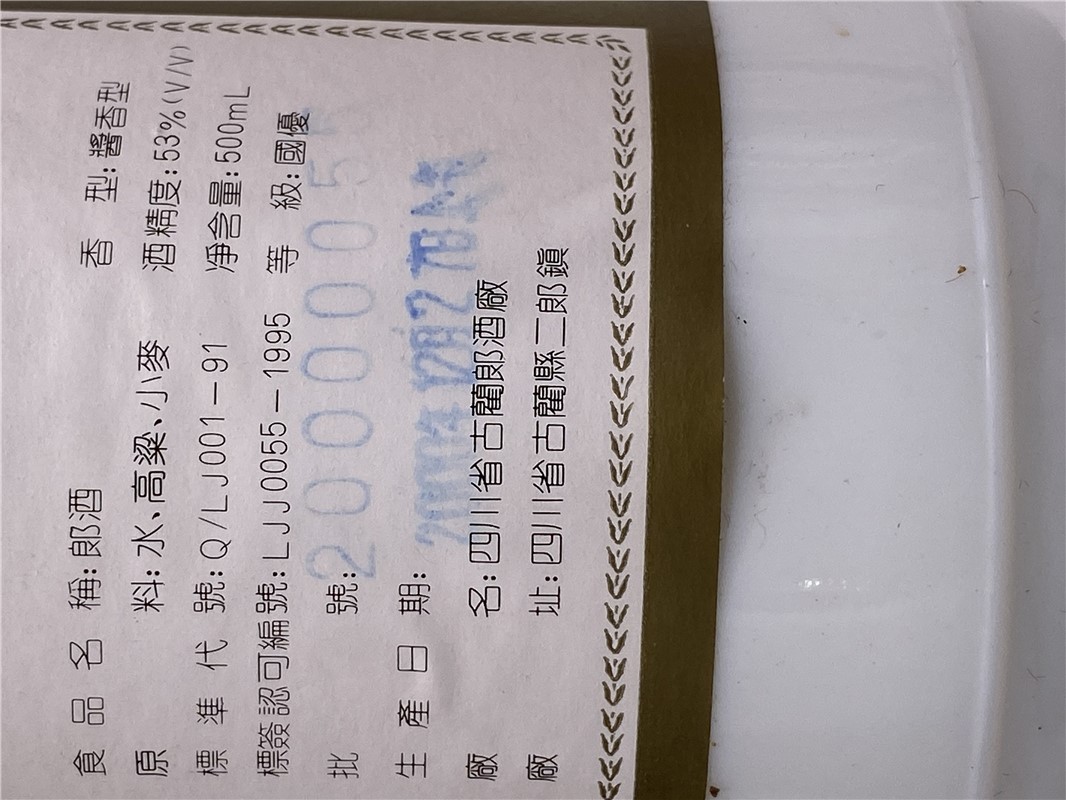 食品名稱:郎酒 香型:醬香型
原料:水、高粱、小麥 酒精度:53%(V/V)
標準代號:Q/LJ001-91 凈含量:500mL
標簽認可編號:LJJ0055-1995 等級:國優
批號:2000005
生產日期:2000年12月27日
廠名:四川省古藺郎酒廠
廠址:四川省古藺縣二郎鎮